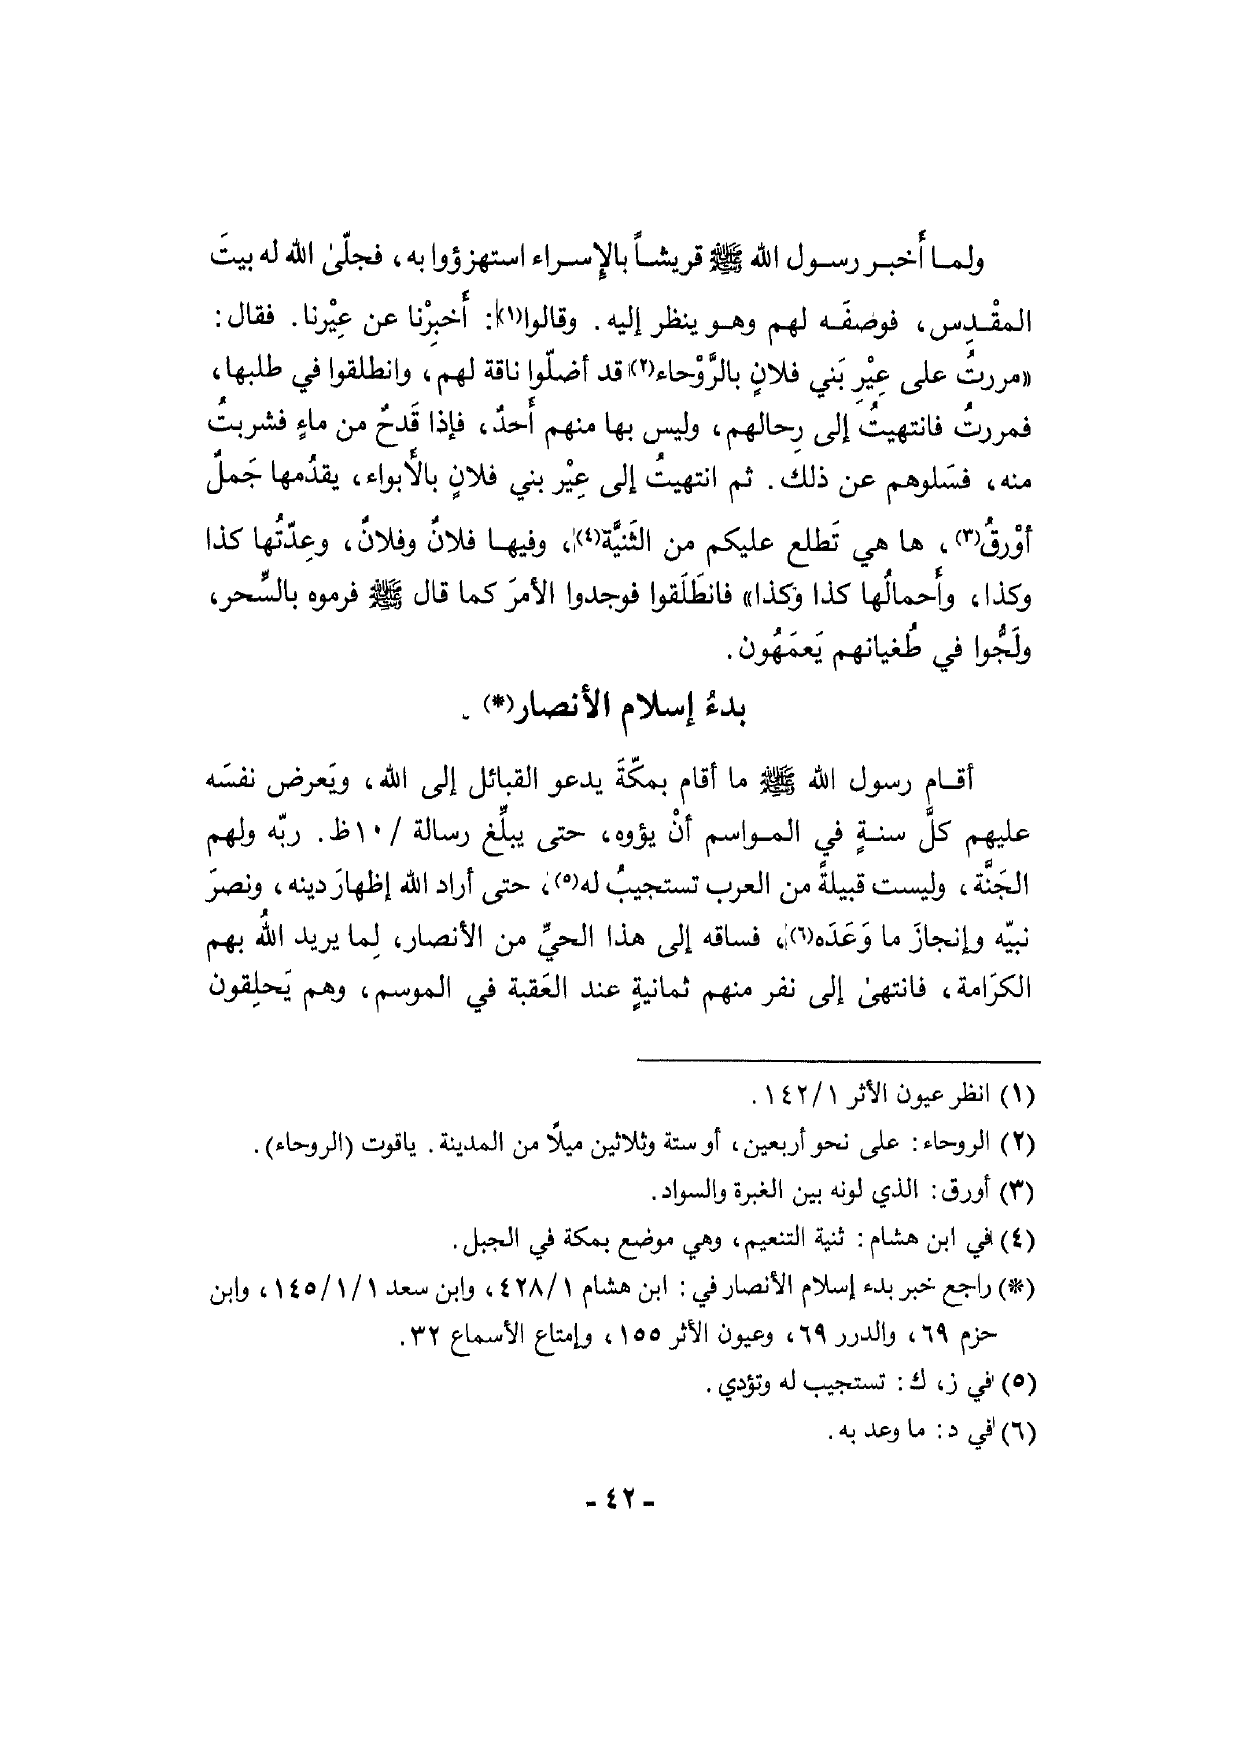 ولمـا أَخبـر رسـول الله ﷺ قريشـاً بالإِسـراء استهزؤوا به، فجلّىٰ الله له بيتَ
المقْـدِس، فوصفَـه لهم وهـو ينظر إليه. وقالوا(١): أَخبِرْنا عن عِيْرنا. فقال:
«مررتُ على عِيْرِ بَني فلانٍ بالرَّوْحاء(٢) قد أضلّوا ناقة لهم، وانطلقوا في طلبها،
فمررتُ فانتهيتُ إلى رِحالهم، وليس بها منهم أَحدٌ، فإذا قَدحٌ من ماءٍ فشربتُ
منه، فسَلوهم عن ذلك. ثم انتهيتُ إلى عِيْر بني فلانٍ بالأَبواء، يقدُمها جَملٌ
أوْرقُ(٣)، ها هي تَطلع عليكم من الثَنيَّة(٤)، وفيهـا فلانٌ وفلانٌ، وعِدّتُها كذا
وكذا، وأَحمالُها كذا وكذا» فانطَلَقوا فوجدوا الأمرَ كما قال ﷺ فرموه بالسِّحر،
ولَجُّوا في طُغيانهم يَعمَهُون.
بدءُ إسلام الأنصار(*).
أقـام رسول الله ﷺ ما أقام بمكّةَ يدعو القبائل إلى الله، ويَعرض نفسَه
عليهم كلَّ سنـةٍ في المـواسم أنْ يؤوه، حتى يبلِّغ رسالة /١٠ظ. ربّه ولهم
الجَنَّة، وليست قبيلةً من العرب تستجيبُ له(٥)، حتى أراد الله إظهارَ دينه، ونصرَ
نبيّه وإنجازَ ما وَعَدَه(٦)، فساقه إلى هذا الحيِّ من الأنصار، لِما يريد اللهُ بهم
الكرَامة، فانتهىٰ إلى نفر منهم ثمانيةٍ عند العَقبة في الموسم، وهم يَحلِقون
(١) انظر عيون الأثر ١٤٢/١.
(٢) الروحاء: على نحو أربعين، أو ستة وثلاثين ميلًا من المدينة. ياقوت (الروحاء).
(٣) أورق: الذي لونه بين الغبرة والسواد.
(٤) في ابن هشام: ثنية التنعيم، وهي موضع بمكة في الجبل.
(*) راجع خبر بدء إسلام الأنصار في: ابن هشام ٤٢٨/١، وابن سعد ١٤٥/١/١، وابن
حزم ٦٩، والدرر ٦٩، وعيون الأثر ١٥٥، وإمتاع الأسماع ٣٢.
(٥) في ز، ك: تستجيب له وتؤدي.
(٦) في د: ما وعد به.
- ٤٢ -